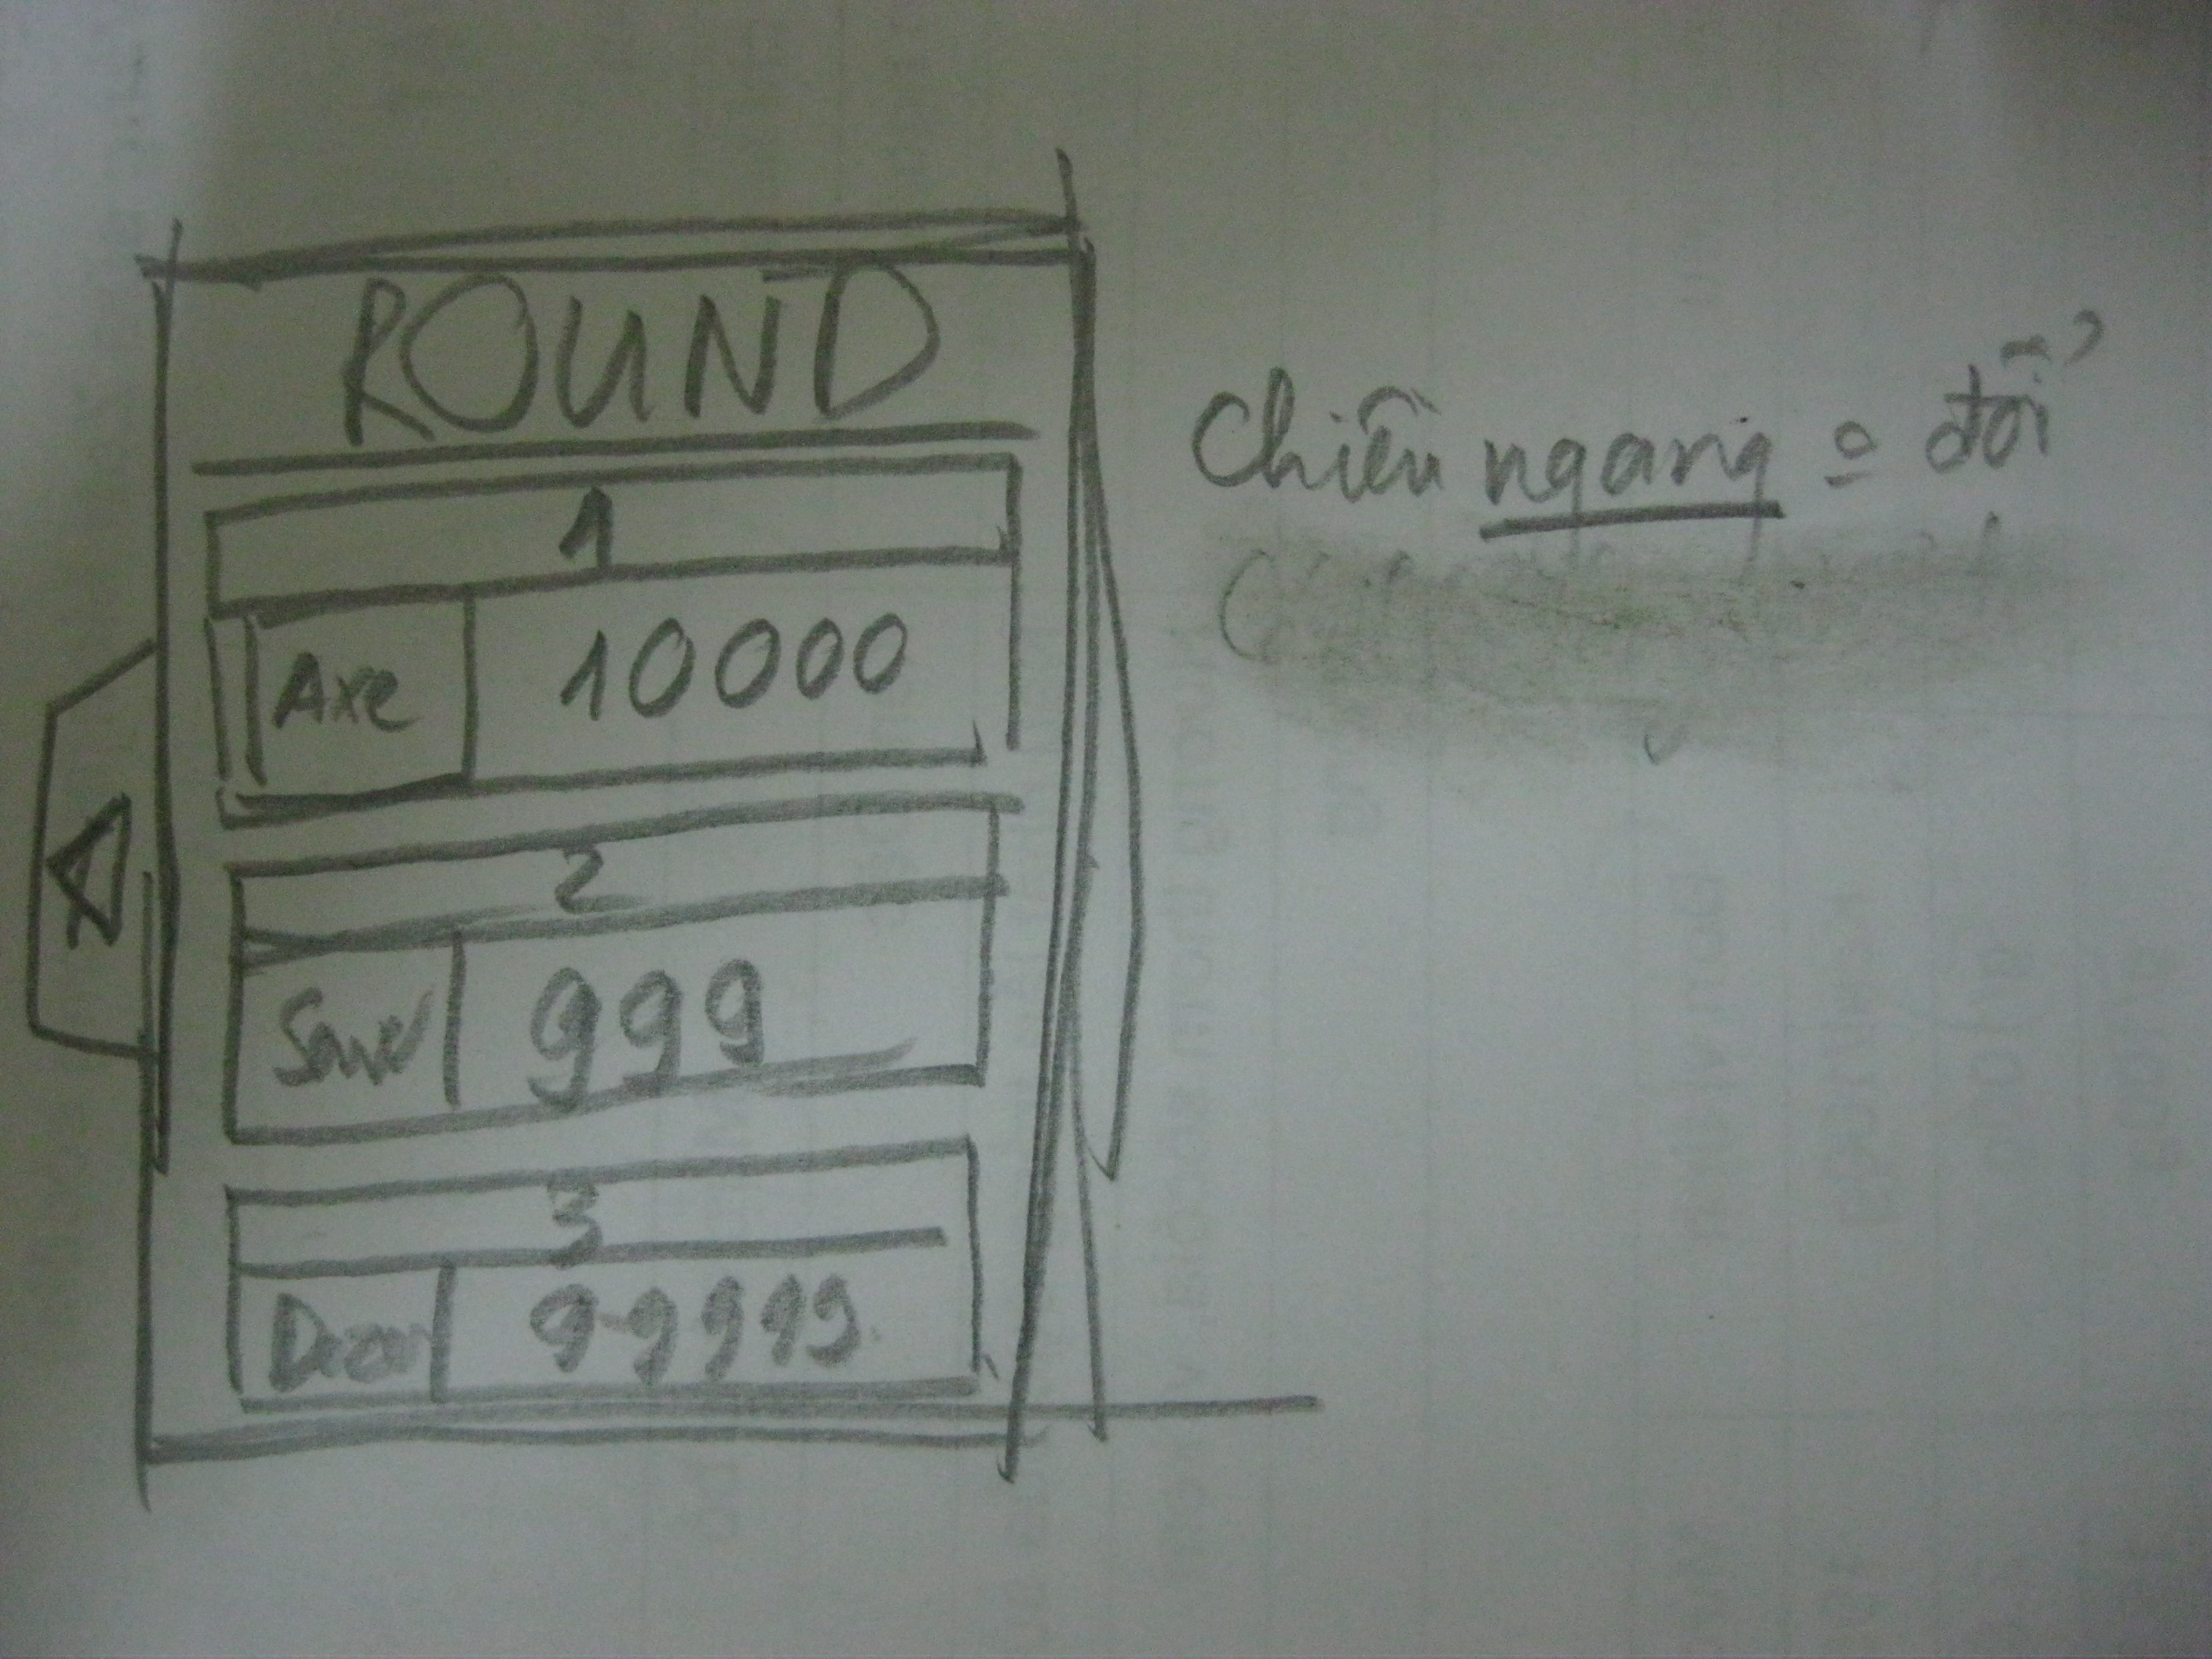 ROUND
1
Axe 10000
2
999
3
99999
Chiều ngang = đổi